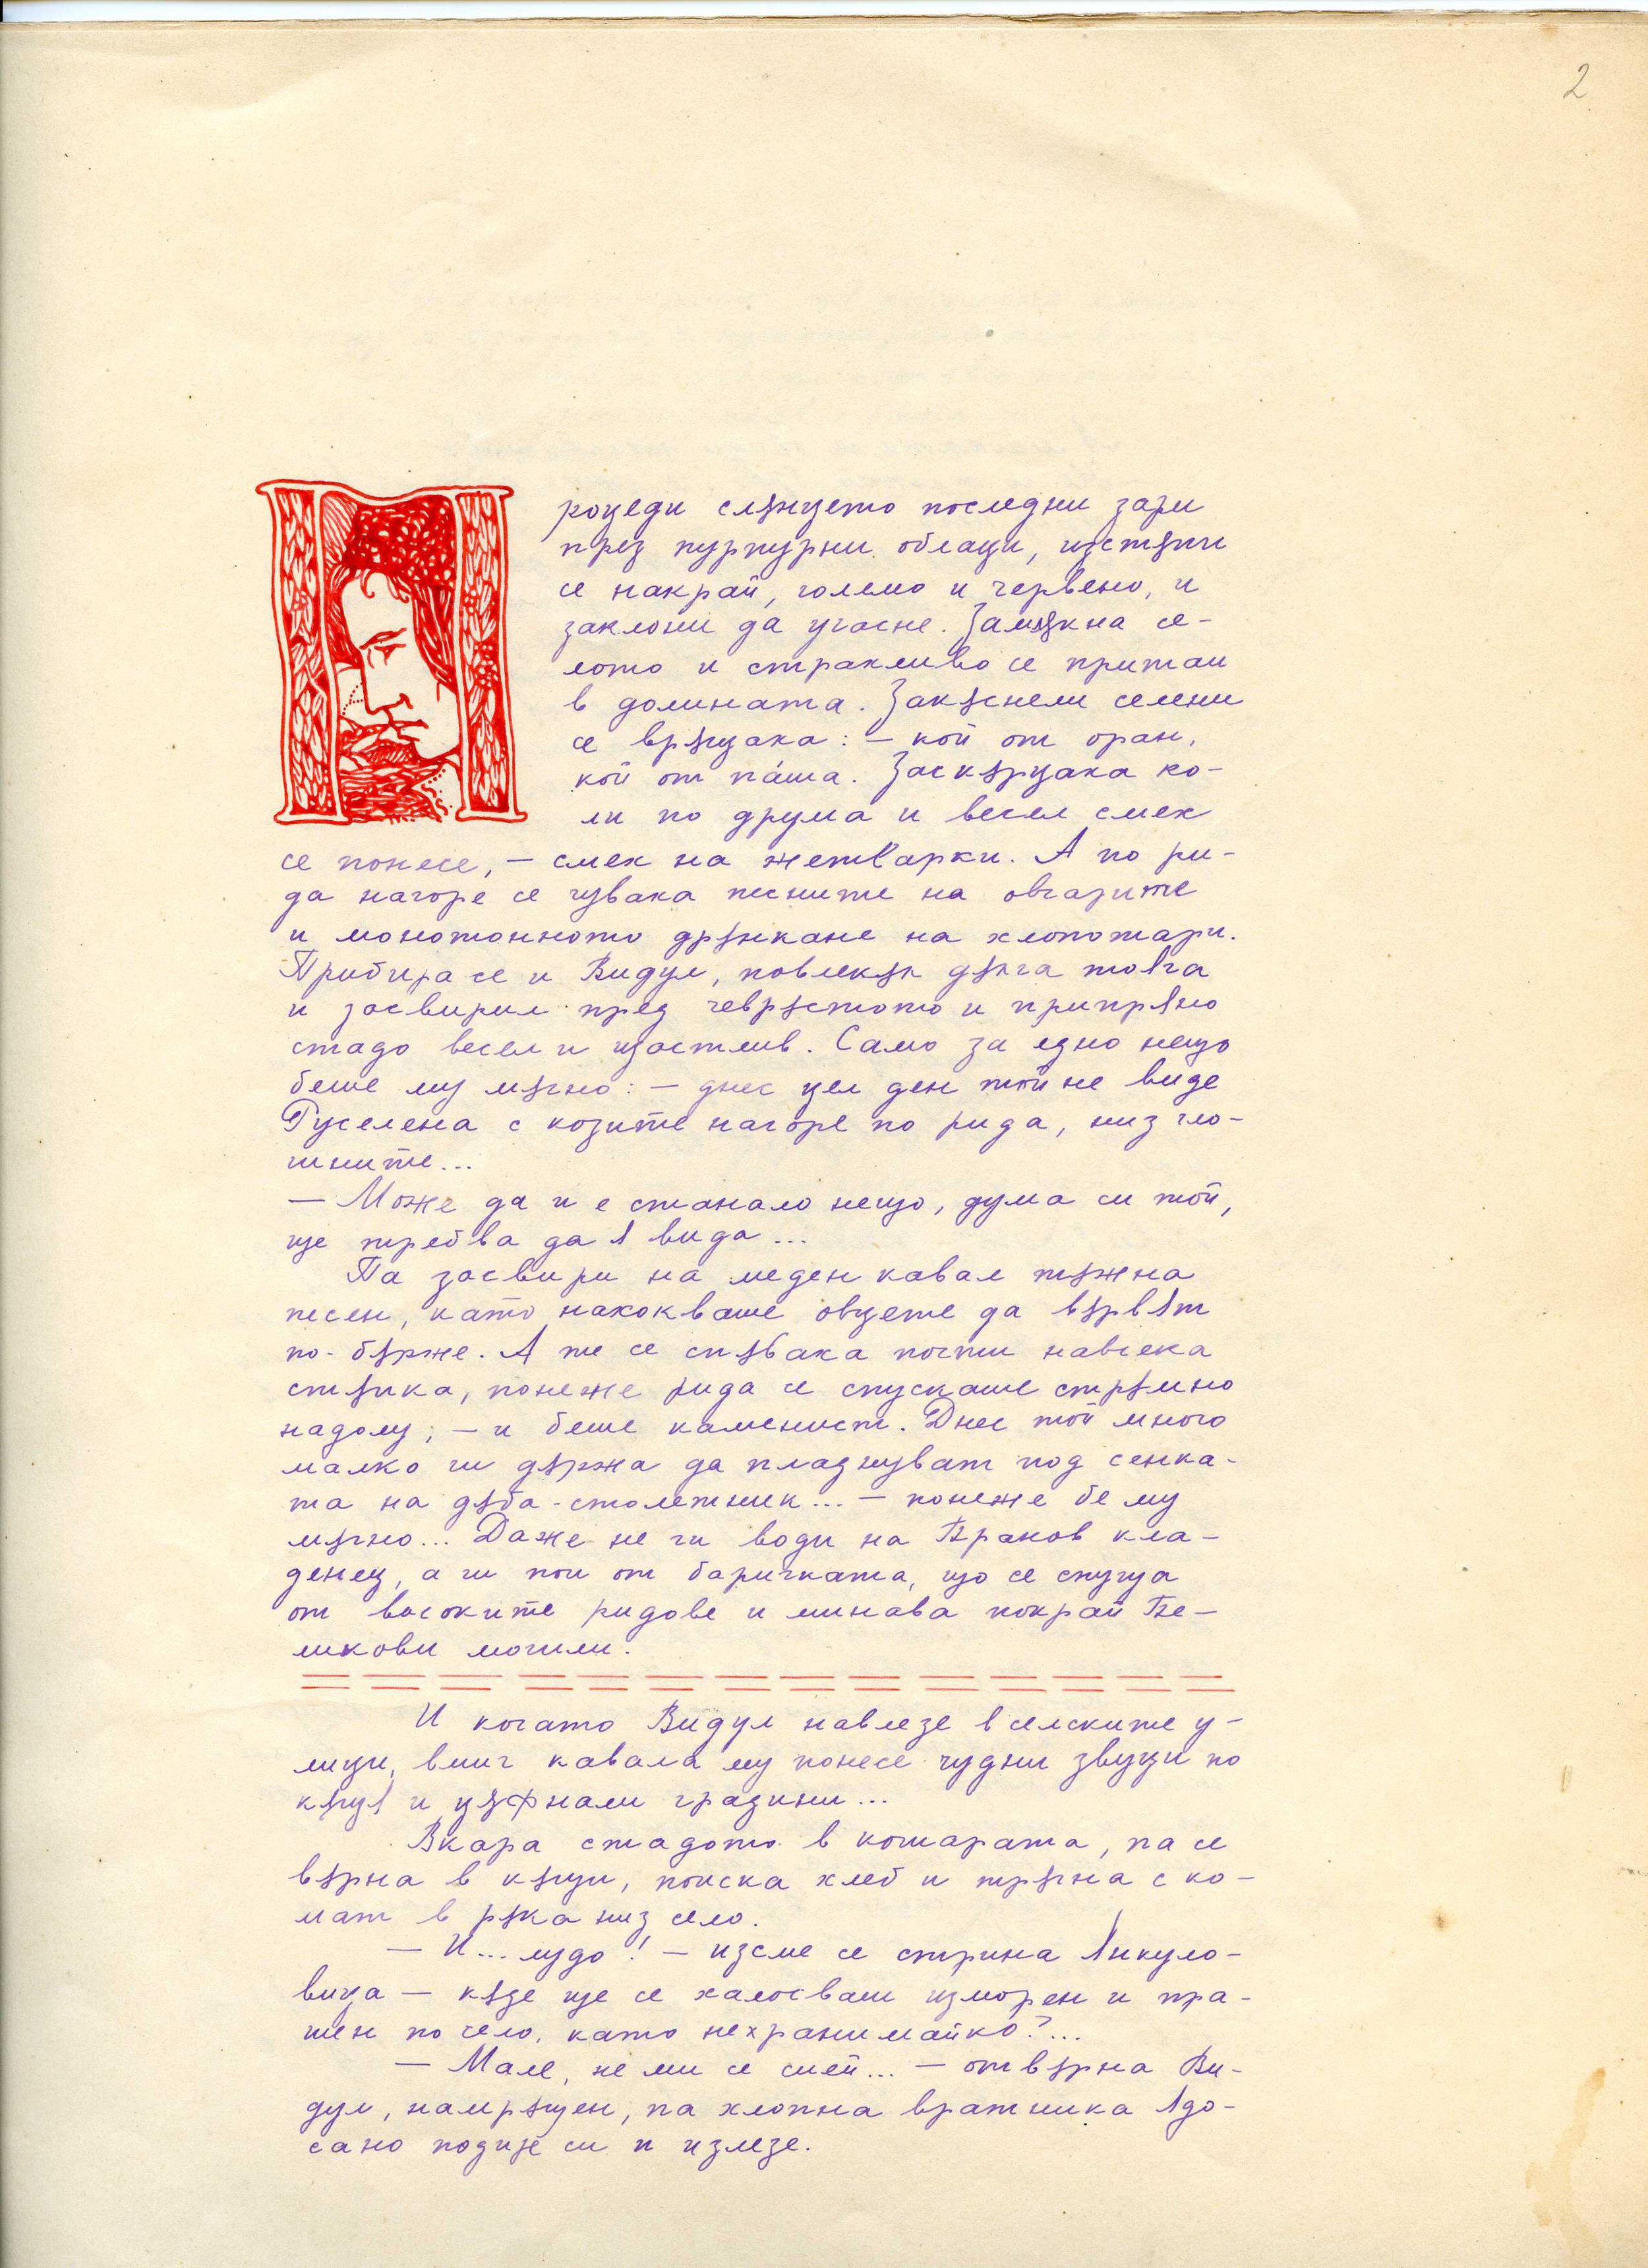 2
Процеди слънцето последни зари
през пурпурни облаци, изстъпи
се накрай, големо и червено, и
заклони да угасне. Замлъкна се-
лото и страхливо се притаи
в долината. Закъснели селени
се връщаха: – кой от оран,
кой от па́ша. Заскърцаха ко-
ли по друма и весел смех
се понесе, – смех на жетварки. А по ри-
да нагоре се чуваха песните на овчарите
и монотонното дрънкане на хлопотари.
Прибира се и Видул, повлекъл дълга тояга
и засвирил пред чевръстото и припряно
стадо весел и щастлив. Само за едно нещо
беше му мъчно: – днес цел ден той не виде
Руселена с козите нагоре по рида, низ гло-
гините...
– Може да и е станало нещо, дума си той,
ще требва да я вида...
Па засвири на меден кавал тъжна
песен, като нахокваше овцете да върват
по-бърже. А те се спъваха почти навсека
стъпка, понеже рида се спускаше стръмно
надолу; – и беше каменист. Днес той много
малко ги държа да пладнуват под сенка-
та на дъба-столетник... – понеже бе му
мъчно... Даже не ги води на Вранов кла-
денец, а ги пои от баричката, що се спуща
от високите ридове и минава покрай Ве-
ликови могили.
И когато Видул навлезе в селските у-
лици, вмиг кавала му понесе чудни звуци по
къщя и цъфнали градини...
Вкара стадото в кошарата, па се
върна в къщи, поиска хлеб и тръгна с ко-
мат в ръка низ село.
– И... лудо! – изсме се стрина Якуло-
вица – къде ще се халосваш изморен и пра-
шен по село, като нехранимайко?...
– Мале, не ми се смей... – отвърна Ви-
дул, намръщен, па хлопна вратника ядо-
сано подире си и излезе.